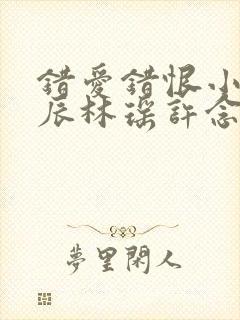 錯愛錯恨小
辰林瑶許念
夢里閑人